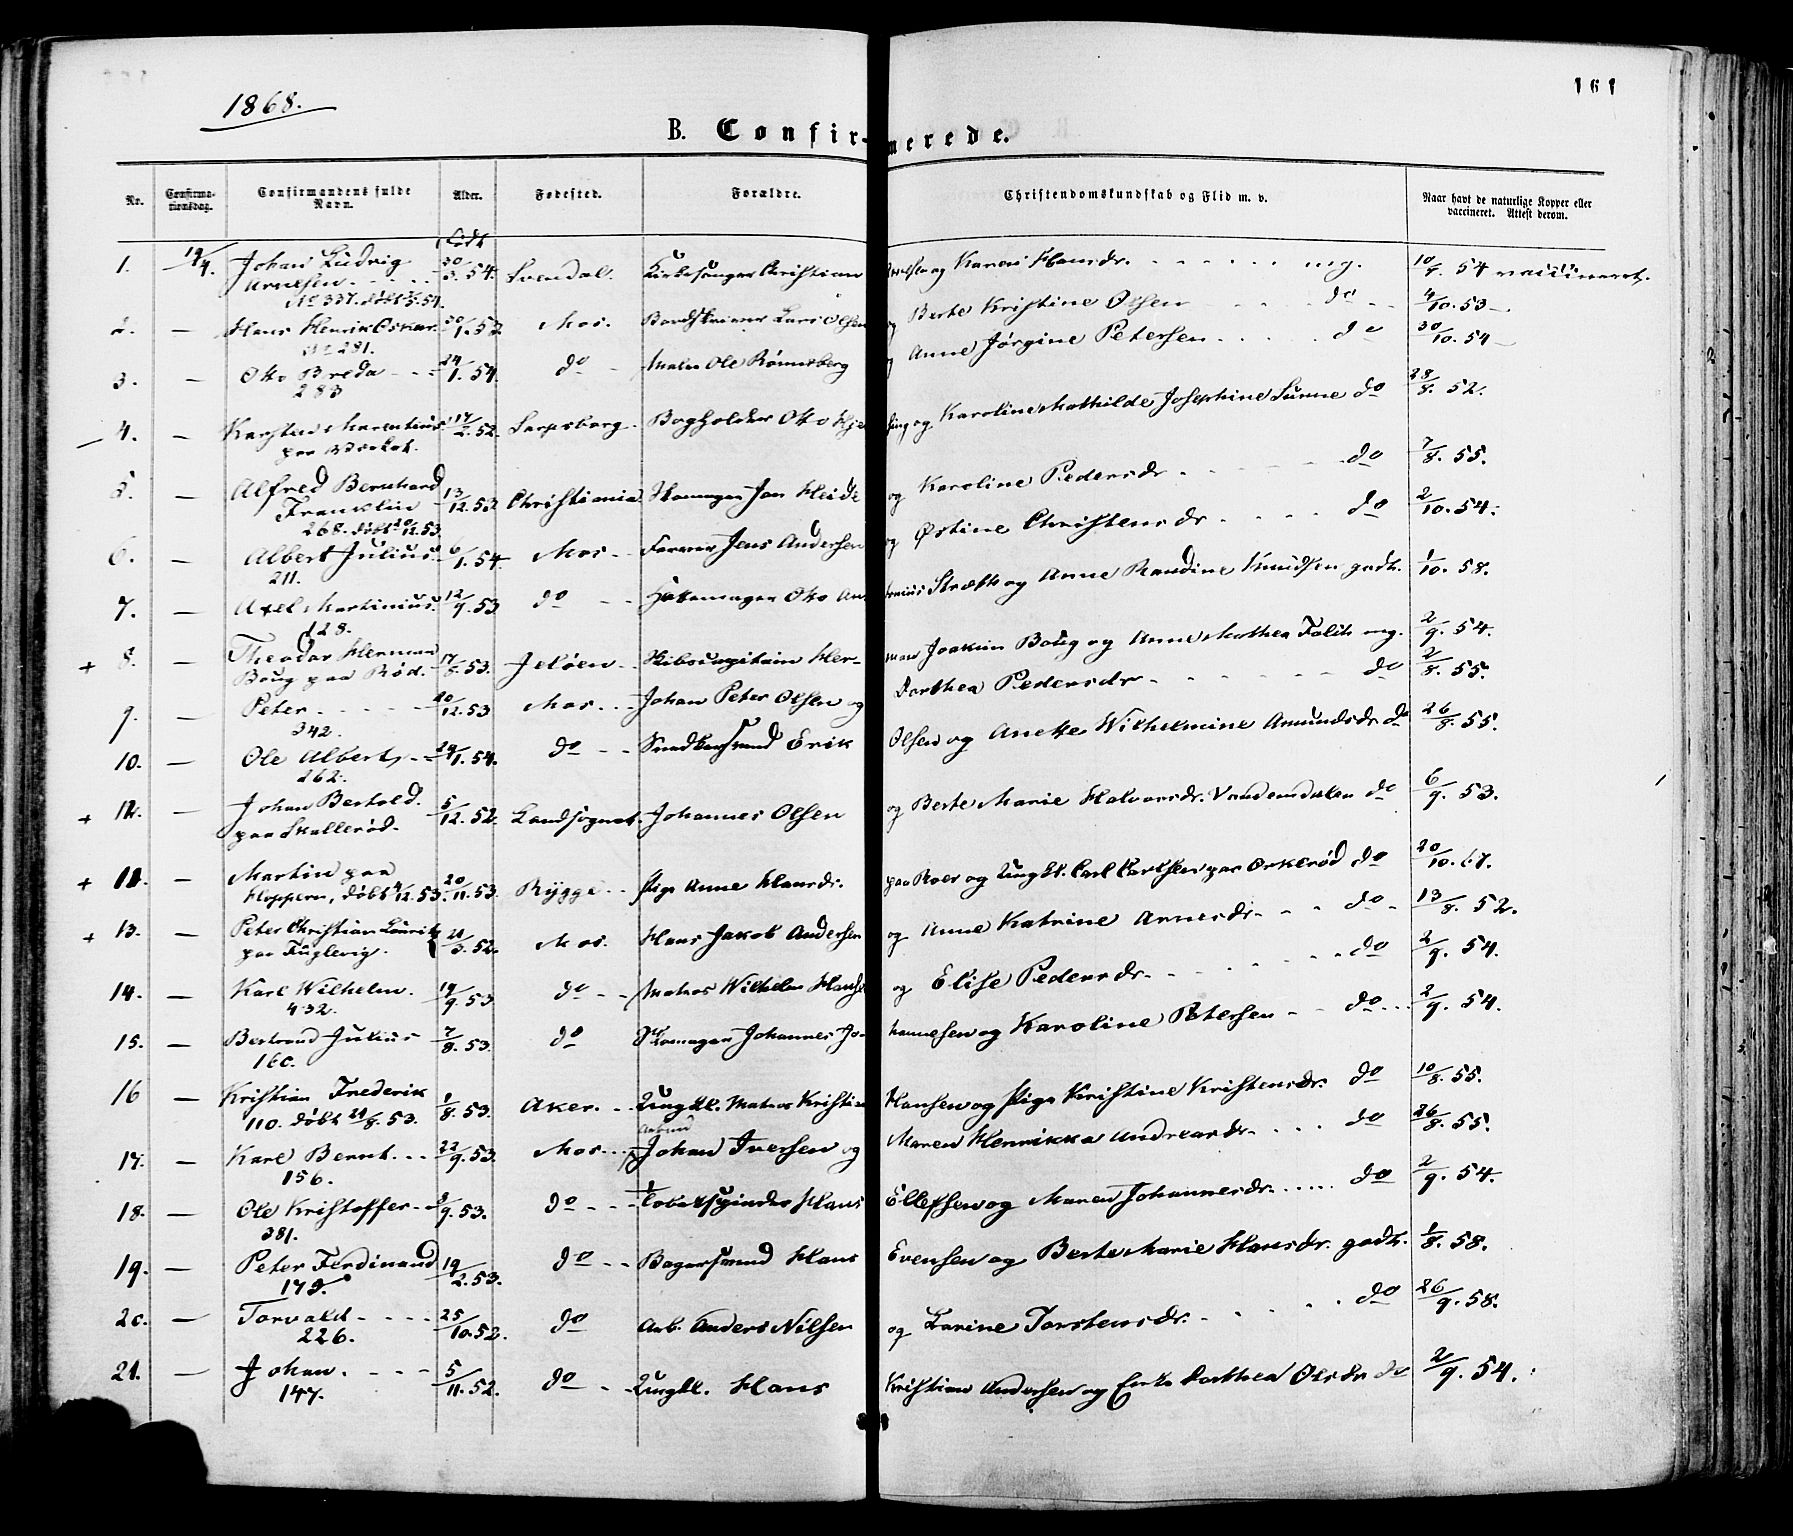 1868.
161
B. Confirmerede.
Nr. Confirmationsdag. Confirmandens fulde Navn. Alder. Fødested. Forældre. Christendomskundskab og Flid m. v. Naar havt de naturlige Kopper eller vaccineret. Attest derom.
født
1. 19/4. Johan Ludvig 30/3. 54. Svendal. Kirkesanger Christian Arnesen og Karen Hansdr. mg. 10/9. 54 vaccineret.
Arnesen
No 337. døbt
2. — Hans Henrik Oskar. 30/1. 52 Mos. Lars Olsen og Berte Kristine Olsen do 4/10. 53
No 281.
3. — Otto Breda 24/1. 54. do Maler Ole Rønneberg og Anne Jørgine Petersen do 30/10. 54
283
4. — Karsten Marentius 17/2. 52. Sarpsborg. Bogholder Otto og Karoline Mathilde Josephine Lunne do 28/8. 52.
paa
5. — Alfred Bernhard 13/12. 53 Christiania Skomager Jan Heide og Karoline Pedersdr do 7/8. 55.
Franklin
268. døbt 26/12. 53.
6. — Albert Julius. 6/1. 54 Mos Farver Jens Andersen og Østine Christensdr. do 2/10. 54.
211.
7. — Axel Martinius. 12/9. 53 do Otto og Anne Randine Knudsen godt. 1/10. 58.
128.
+ 8. — Theodor Herman 17/8. 53. Jeløen Skibscapitain Herman Joakim Boug og Anne Mathea Falch mg. 2/9. 54.
Boug paa Rød.
9. — Peter 20/12. 53 Mos Johan Peter Olsen og Dorthea Pedersdr do 2/8. 55.
342.
10. — Ole Albert 29/1. 54. do Snedkersvend Erik Olsen og Anette Wilhelmine Amundsdr. do 26/8. 55.
262.
+ 12. — Johan Bertold. 5/12. 52. Landsognet. Johannes Olsen og Berte Marie Halvorsdr. Vandemdalen do 6/9. 53.
paa Skallerød.
+ 11. — Martin paa 20/11. 53. Rygge Pige Anne Hansdr. paa Roer og Ungkl. Carl Carlsen paa Orkerød do 20/10. 67.
Kloppern, døbt 4/12. 53.
+ 13. — Peter Christian Lauritz 21/3. 52. Mos. Hans Jakob Andersen og Anne Katrine Arnesdr. do 13/8. 52.
paa Fuglevig.
14. — Karl Wilhelm. 19/9. 53 do Matros Wilhelm Hansen og Elise Pedersdr. do 2/9. 54.
432.
15. — Bertrand Julius 7/8. 53. do Skomager Johannes Johannesen og Karoline Petersen do 2/9. 54.
160.
16 — Kristian Frederik 1/8. 53. Aker. Ungkl. Matros Kristian Hansen og Pige Kristine Kristensdr. do 10/8. 55.
110. døbt 21/8. 53.
17. — Karl Bernt 22/9. 53. Mos Johan Iversen og Maren Henrikka Andreasdr. do 26/8. 55.
156.
18. — Ole Kristoffer 2/9. 53. do Tobakspinder Hans Ellefsen og Maren Johannesdr. do 2/9. 54.
381.
19. — Peter Ferdinand 19/2. 53. do Bagersvend Hans Evensen og Berte Marie Hansdr. godt. 1/8. 58.
179.
20. — Torvald 25/10. 52. do Arb. Anders Nilsen og Larine Torstensdr. do 26/9. 58.
226.
21. — Johan. 5/11. 52. do Ungkl. Hans Kristian Andersen og Enke Dorthea Olsdr do 2/9. 54.
147.